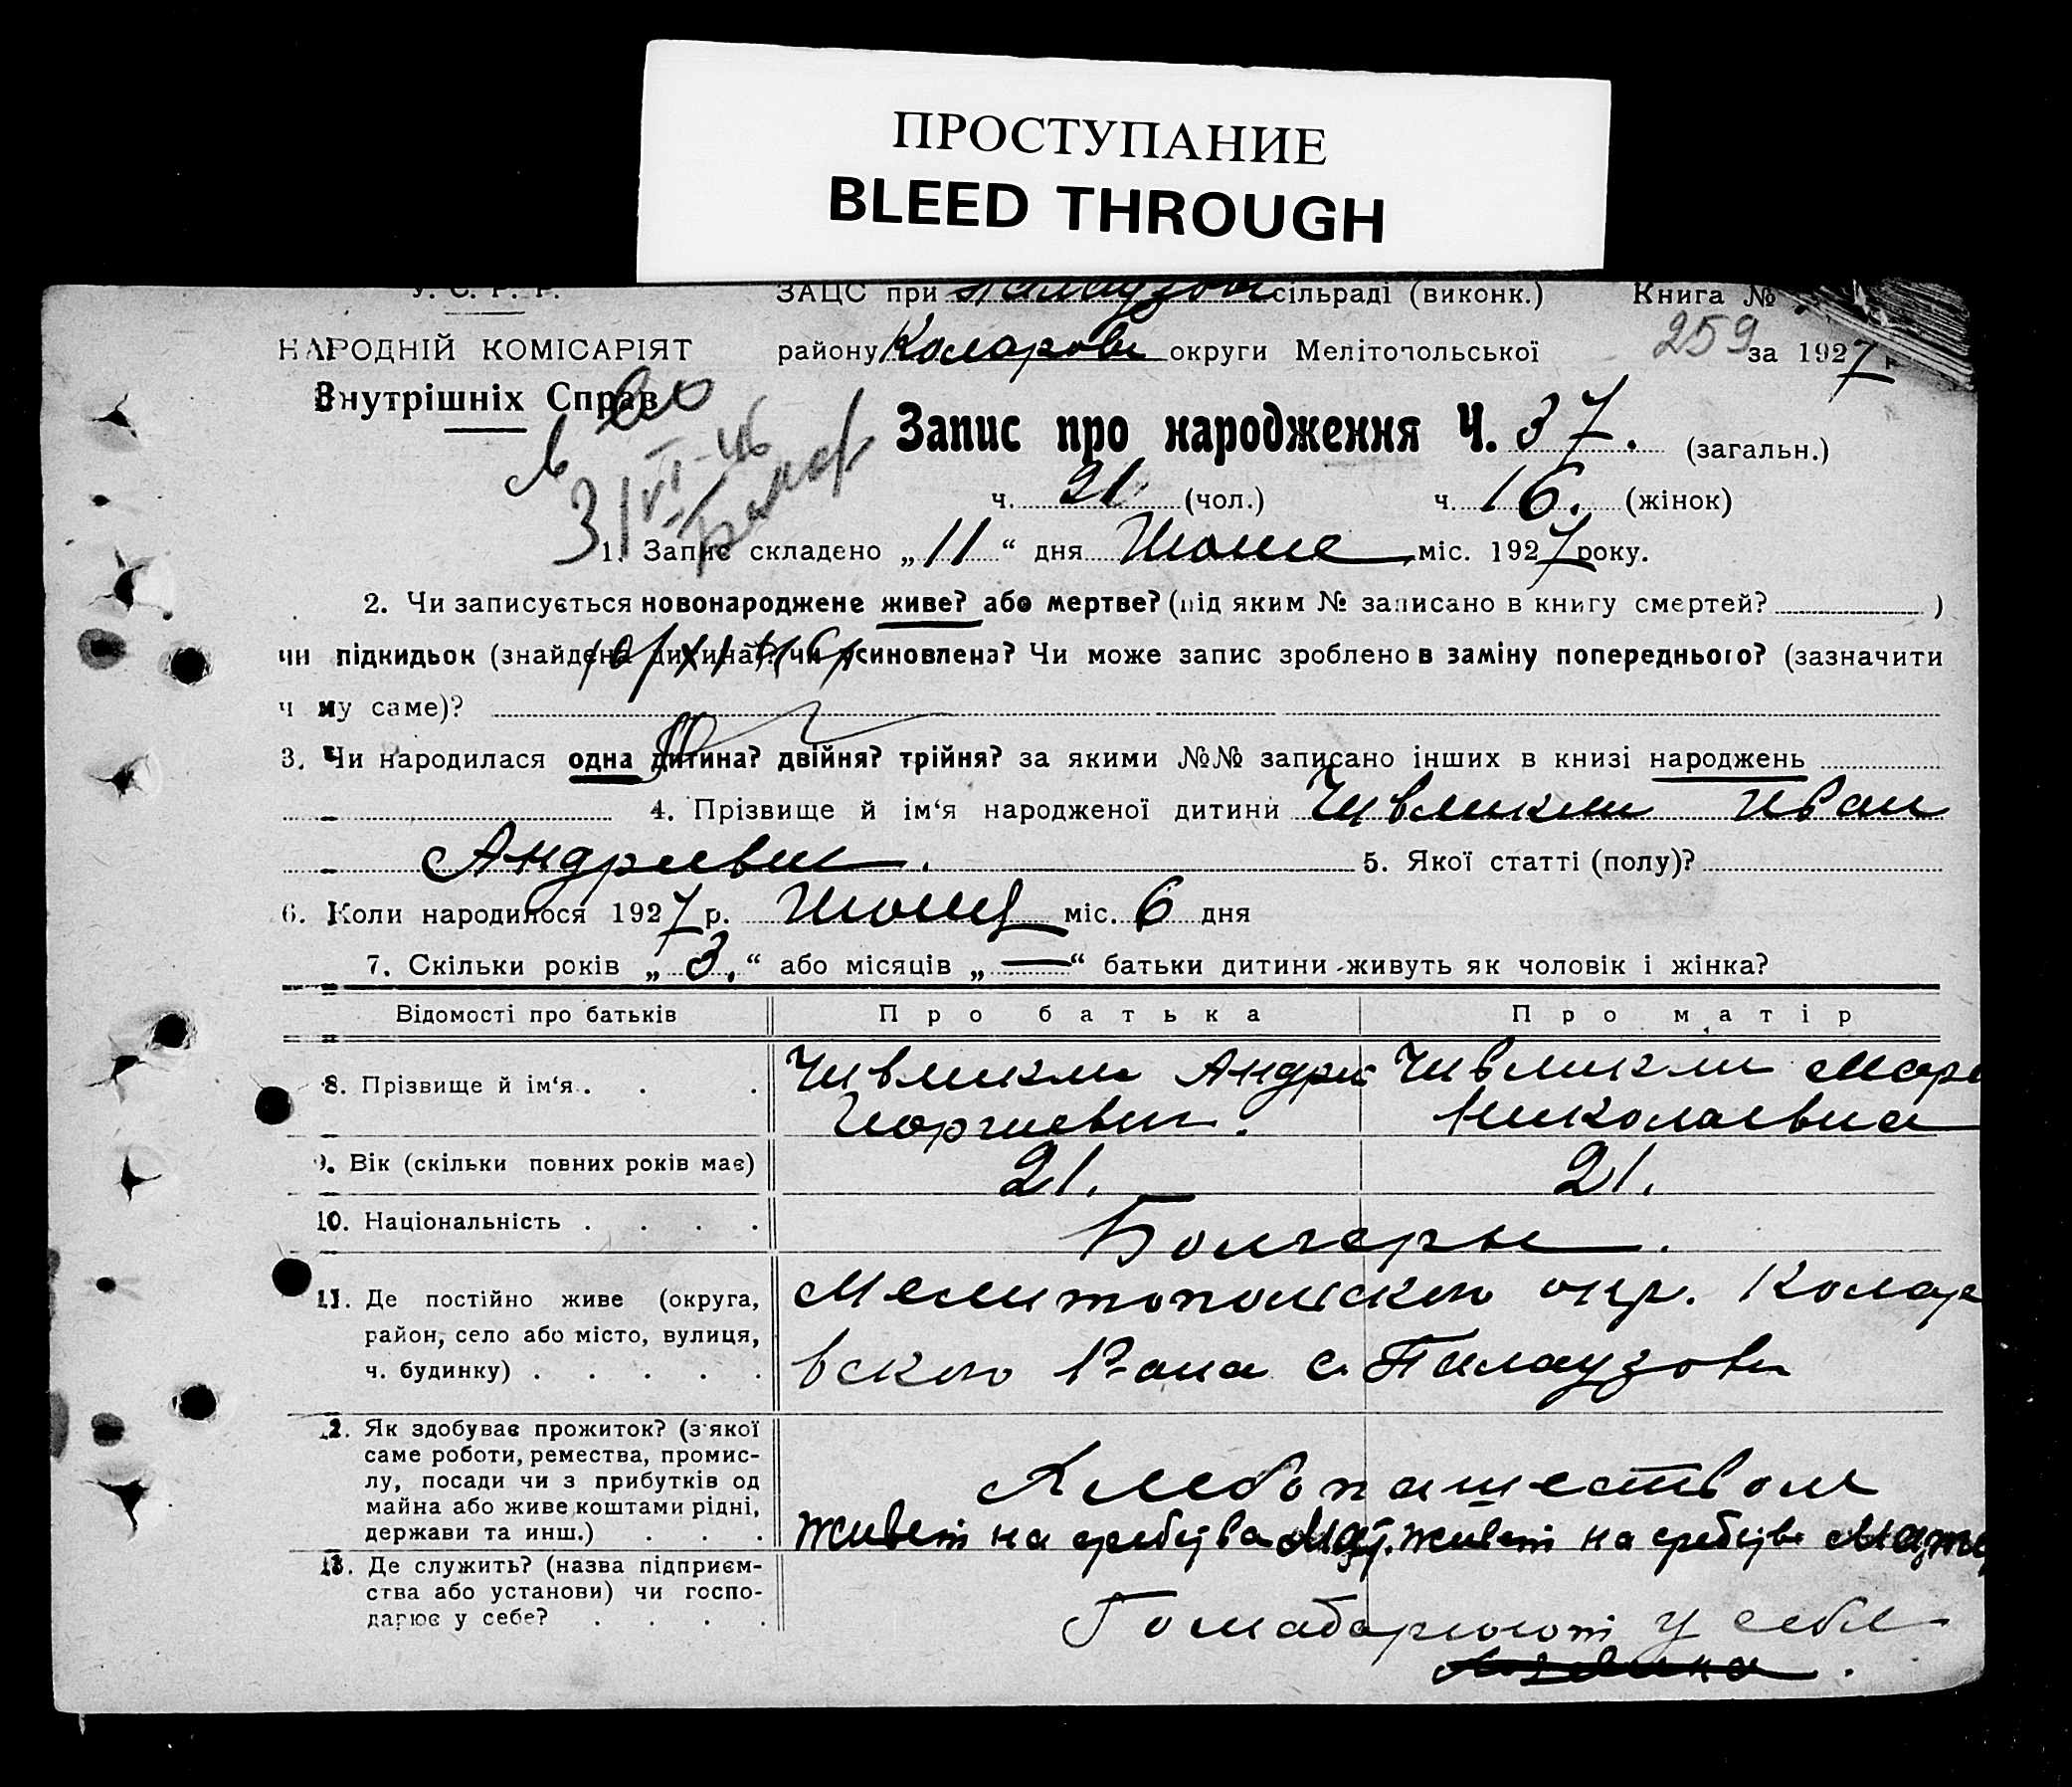 ПРОСТУПАНИЕ
BLEED THROUGH
У. С. Р. Р.
ЗАЦС при Палаузов сільраді (виконк.) Книга №
НАРОДНІЙ КОМІСАРІЯТ
району Коларов округи Мелітопольської 259 за 1927 р
Внутрішніх Справ
Запис про народження Ч. 37. (загальн.)
ч. 21 (чол.) ч. 16. (жінок)
1. Запис складено „ 11 “ дня Июля міс. 1927 року.
2. Чи записується новонароджене живе? або мертве? (під яким № записано в книгу смертей? )
чи підкидьок (знайдена дитина)? чи усиновлена? Чи може запис зроблено в заміну попереднього? (зазначити
ч му саме)?
3. Чи народилася одна дитина? двійня? трійня? за якими №№ записано інших в книзі народжень
4. Прізвище й ім‘я народженої дитини Чивликли Иван
Андреевич.
5. Якої статті (полу)?
6. Коли народилося 1927 р. Июля міс. 6 дня
7. Скільки років „ 3. “ або місяців „ — “ батьки дитини живуть як чоловік і жінка?
Відомості про батьків Про батька Про матір
8. Прізвище й ім‘я . . . Чивликли Андрей Чивликли Мари
Георгиевич. Николаевна
9. Вік (скільки повних років має) 21. 21.
10. Національність . . . . Болгеры.
11. Де постійно живе (округа, район, село або місто, вулиця, ч. будинку) . . . . .
Мелитопольского окр. Колар
вского Р-она с. Палаузовк
12. Як здобуває прожиток? (з'якої
саме роботи, ремества, промис-
лу, посади чи з прибутків од
майна або живе коштами рідні,
держави та инш.) . . .
Хлебопашеством
живет на средства живет на средства
13. Де служить? (назва підприєм-
ства або установи) чи госпо-
дарює у себе? . . . .
у себя